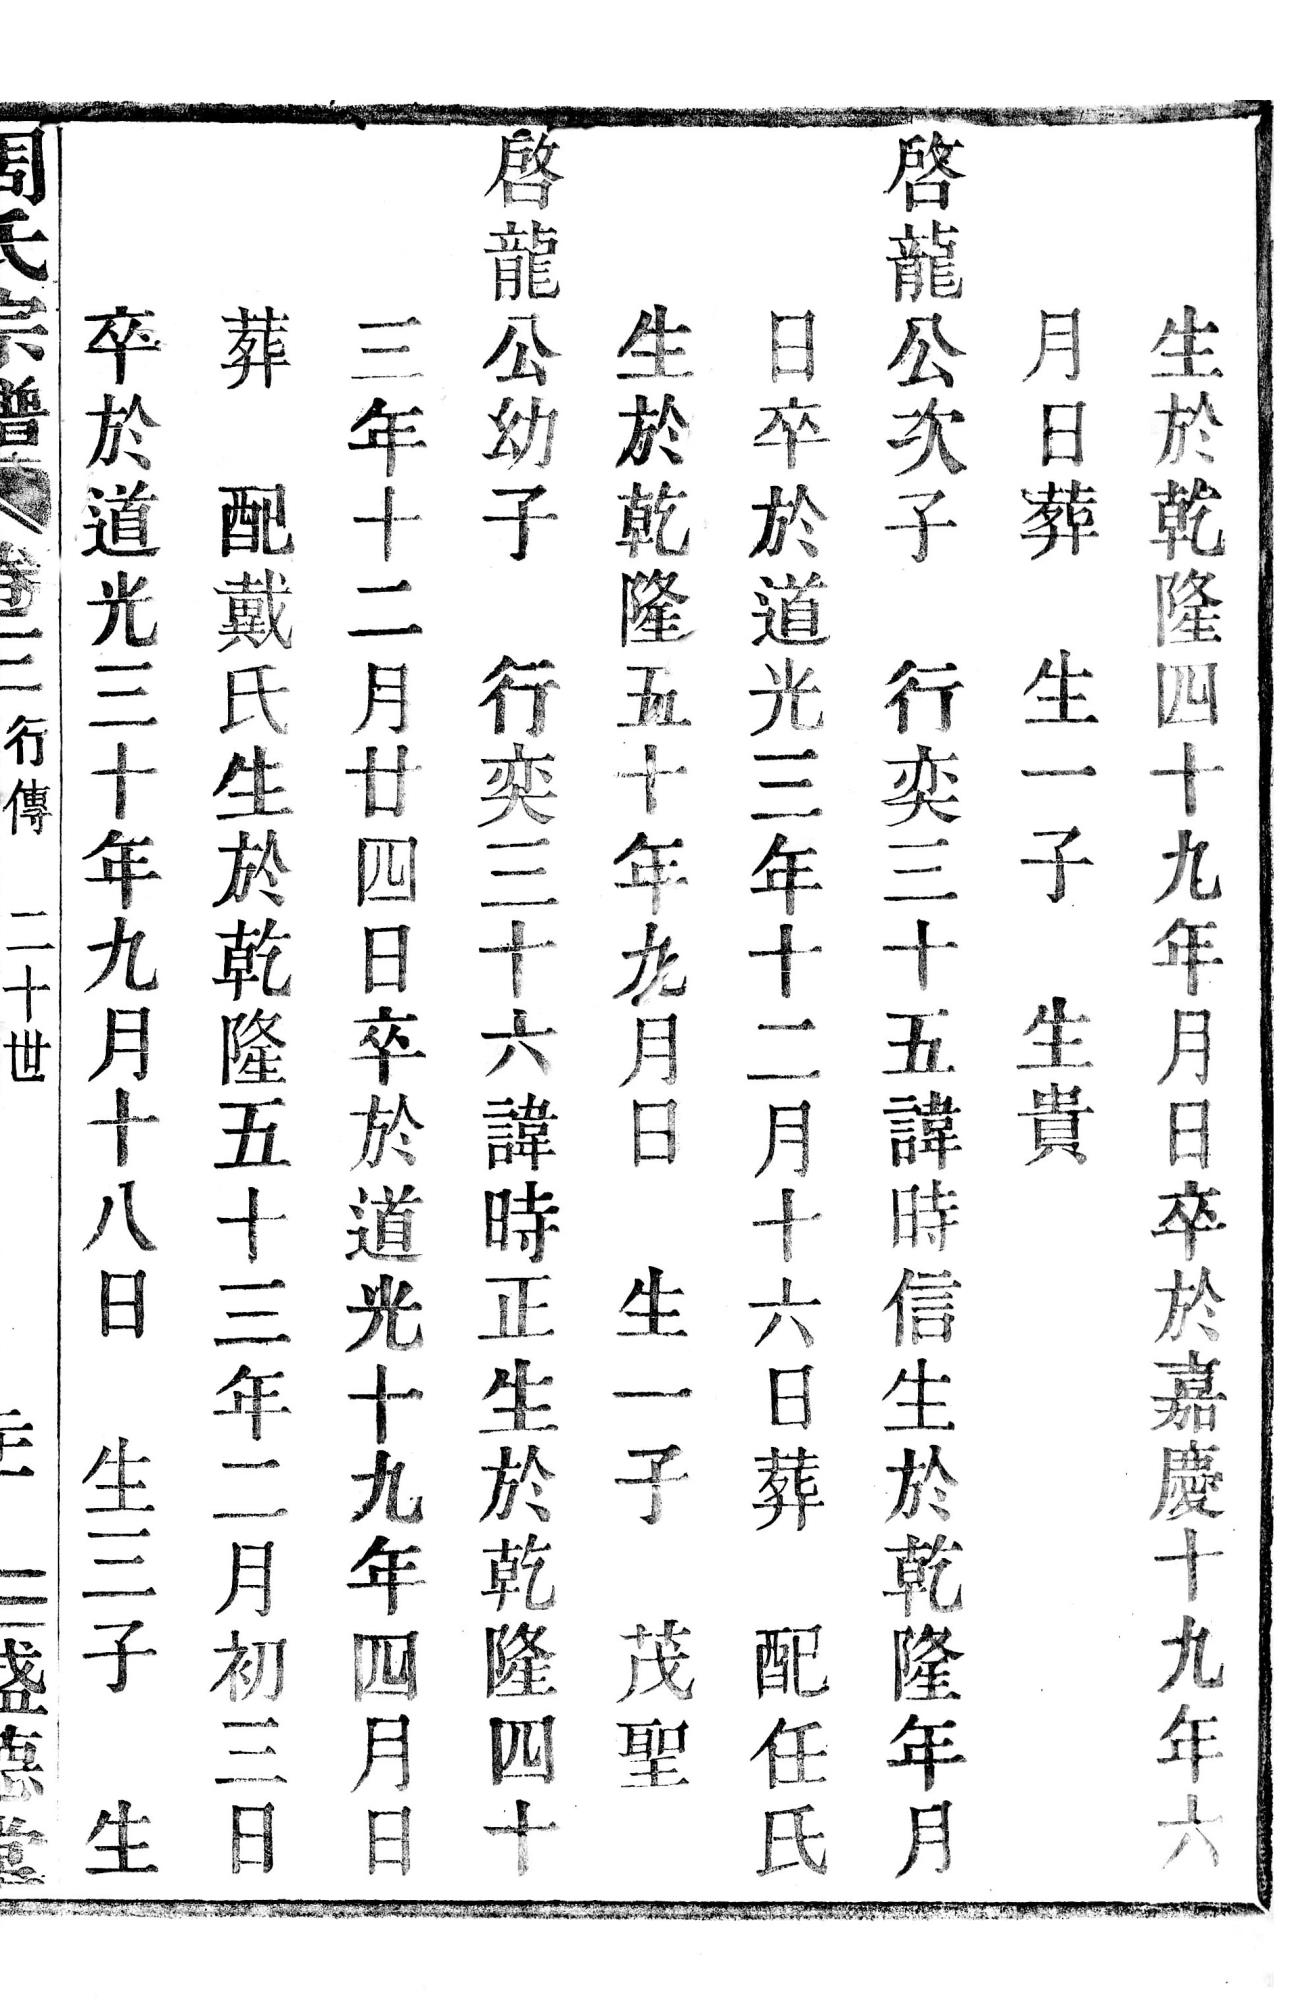 生於乾隆四十九年月日卒於嘉慶十九年六
月日葬　生一子　生貴
啓龍公次子　行奕三十五諱時信生於乾隆年月
日卒於道光三年十二月十六日葬　配任氏
生於乾隆五十年九月日　生一子　茂聖
啓龍公幼子　行奕三十六諱時正生於乾隆四十
三年十二月廿四日卒於道光十九年四月日
葬　配戴氏生於乾隆五十三年二月初三日
卒於道光三十年九月十八日　生三子　生
周氏宗譜　卷二　行傳　二十世　三盛德堂